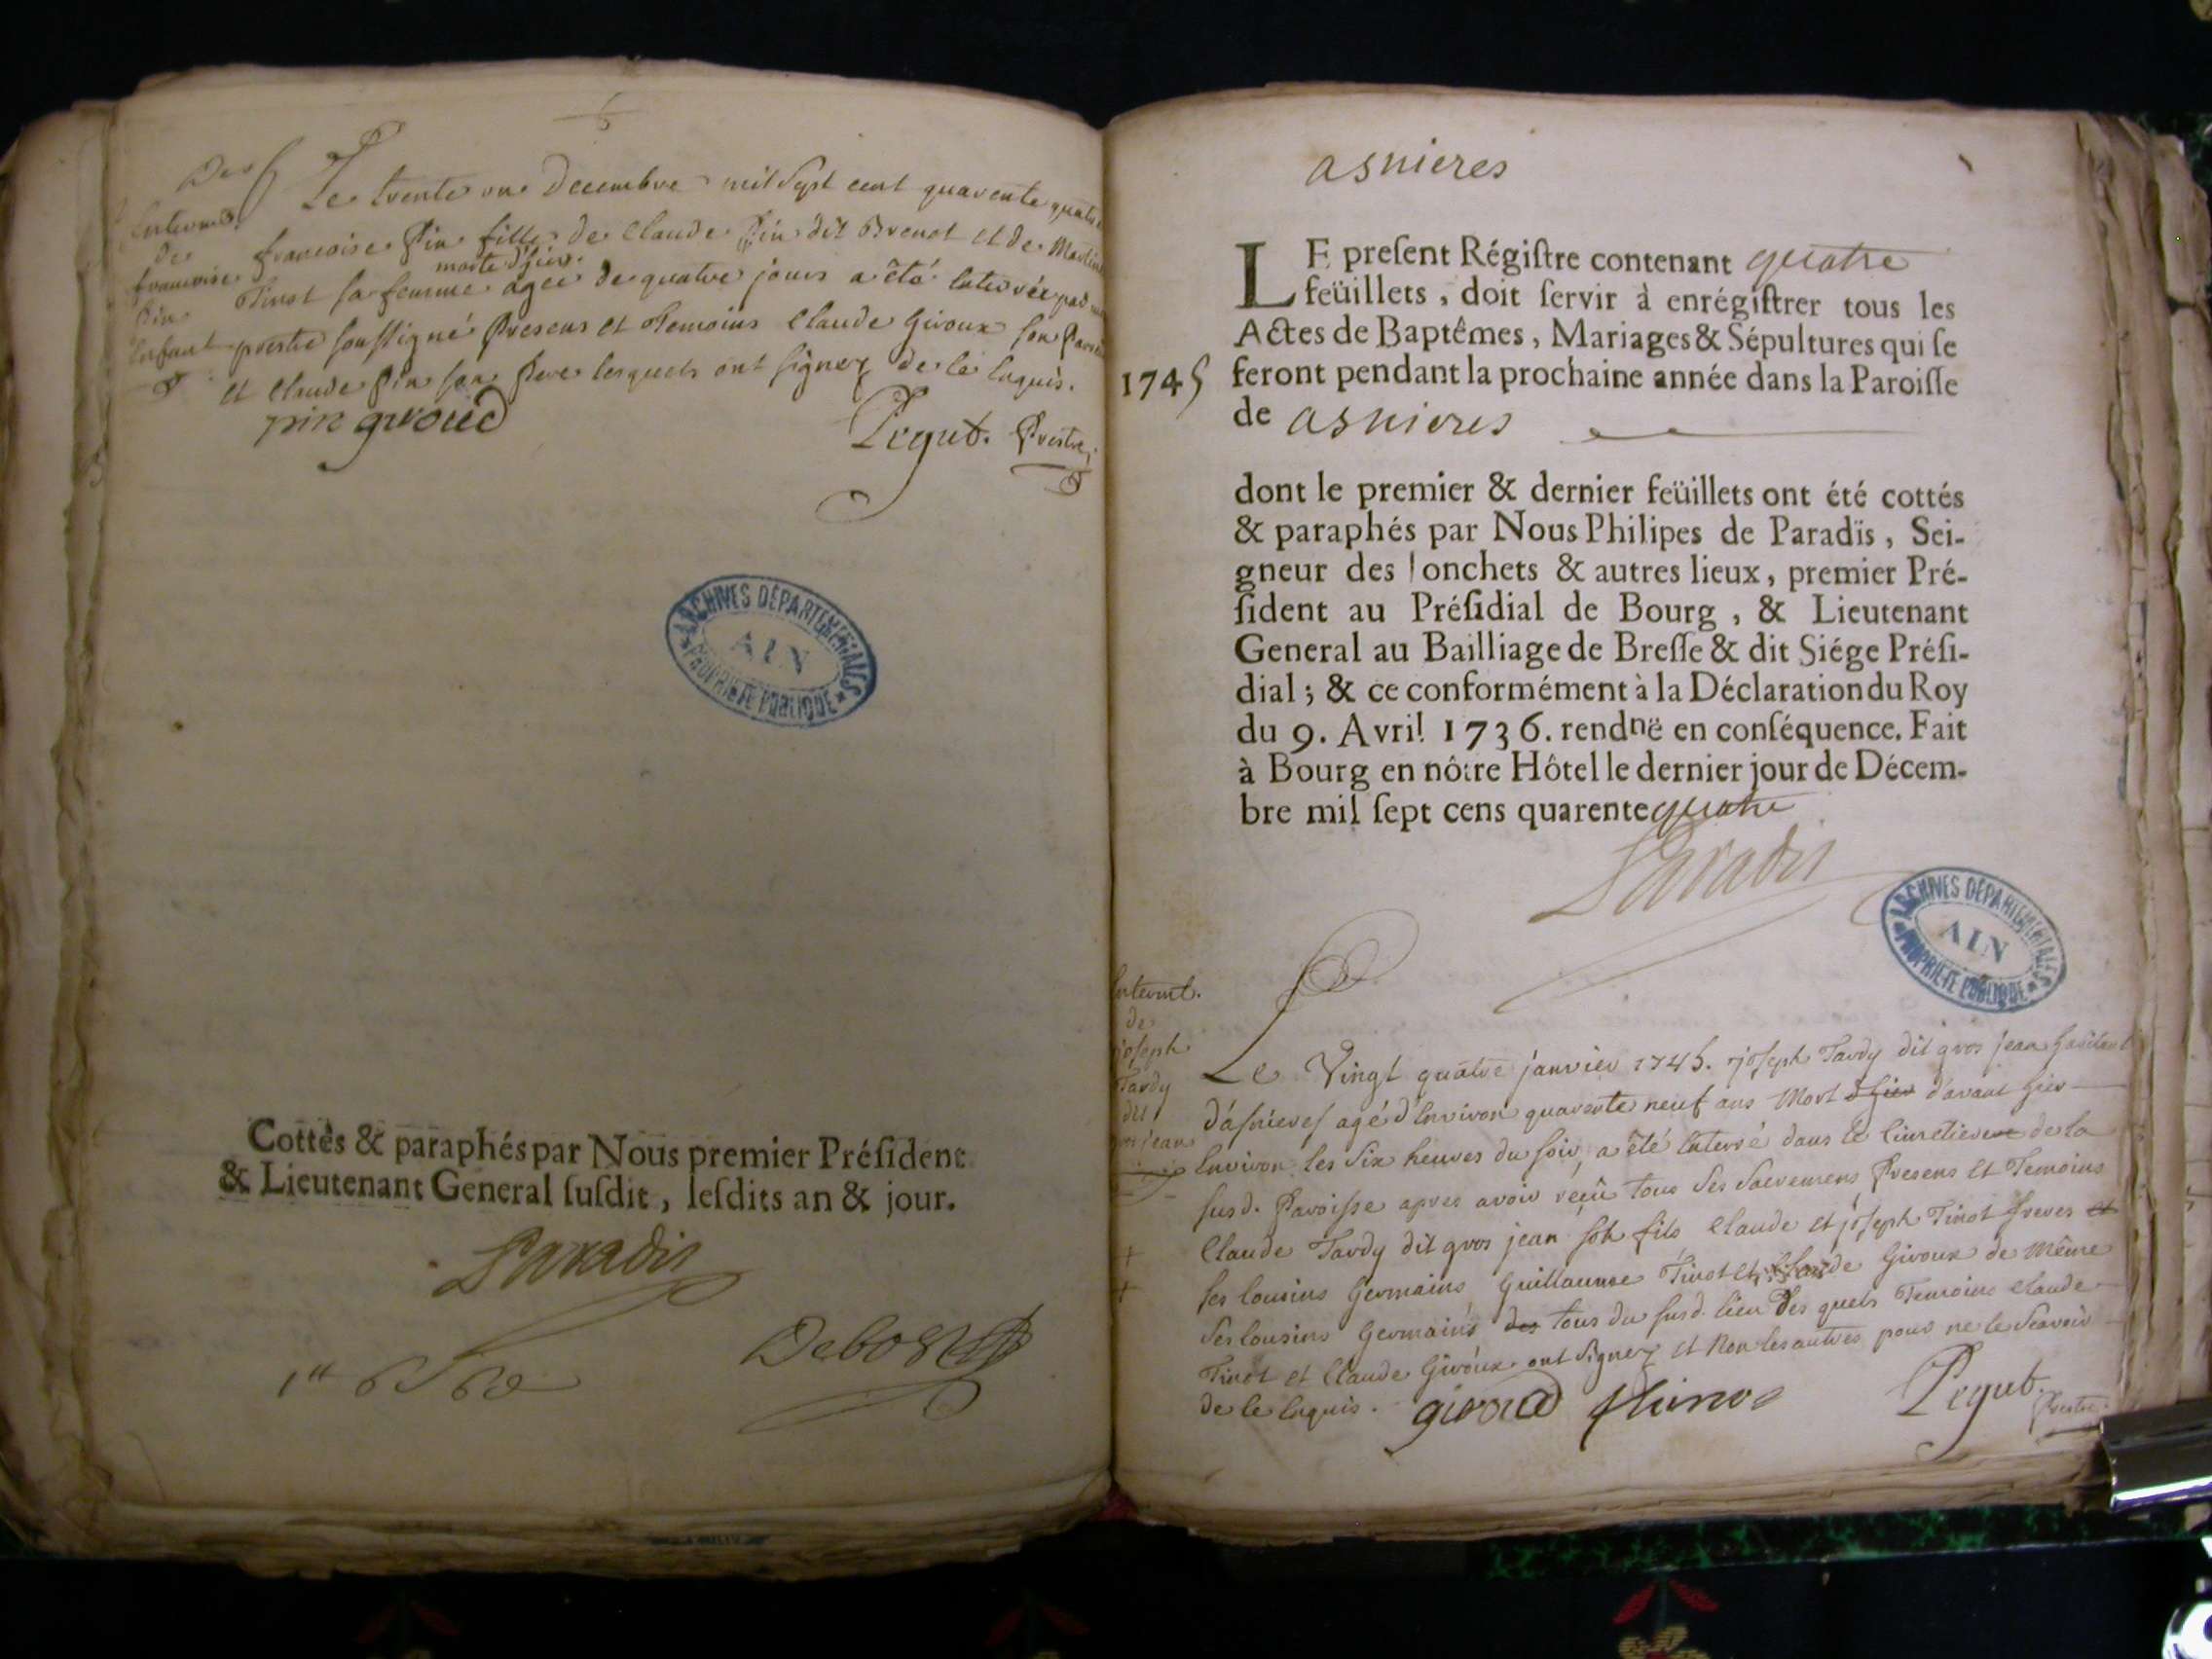 Enterm.t
de
francoise
Pin
Enfant
Le trente un Decembre mil sept cent quarente quatre
francoise Pin fille de Claude Pin dit Brenot et de Martine
morte d'hier
Tinot sa femme agee de quatre jours a été Enterrée par
prestre soussigné Presens et Temoins Claude Giroux son Parein
et Claude Pin son Pere lesquels ont signez de ce Enquis.
pin giroud
Pegut. Prestre
ARCHIVES DÉPARTEMENTALES
AIN
PROPRIÉTÉ PUBLIQUE
Cottés & paraphés par Nous premier Préſident
& Lieutenant General ſuſdit, leſdits an & jour.
Paradis
Debost
asnieres
LE preſent Régiſtre contenant quatre
feüillets, doit ſervir à enrégiſtrer tous les
Actes de Baptêmes, Mariages & Sépultures qui ſe
1745 feront pendant la prochaine année dans la Paroiſſe
de asnieres
dont le premier & dernier feüillets ont été cottés
& paraphés par Nous Philipes de Paradïs, Sei-
gneur des Jonchets & autres lieux, premier Pré-
ſident au Préſidial de Bourg, & Lieutenant
General au Bailliage de Breſſe & dit Siége Préſi-
dial; & ce conformément à la Déclaration du Roy
du 9. Avril 1736. rendnë en conſéquence. Fait
à Bourg en nôtre Hôtel le dernier jour de Décem-
bre mil ſept cens quarente quatre
Paradis
ARCHIVES DÉPARTEMENTALES
AIN
PROPRIÉTÉ PUBLIQUE
Enterm.t
de
joseph
Tardy
dit
gros jean
Le Vingt quatre janvier 1745. joseph Tardy dit gros jean habitant
d'asnieres agé d'Environ quarente neuf ans Mort d'hier d'avant hier
Environ les six heures du soir, a été Enterré dans le Cimetiere de la
susd. Paroisse apres avoir reçû tous ses sacremens, Presens et Temoins
Claude Tardy dit gros jean son fils Claude et joseph Tinot freres et
ses Cousins Germains Guillaume Tinot et Claude Giroux de Même
ses Cousins Germains des tous du susd. lieu Des quels Temoins Claude
Tinot et Claude Giroux ont signez et Non les autres pour ne le scavoir
de ce Enquis.
giroud thinod
Pegut. Prestre